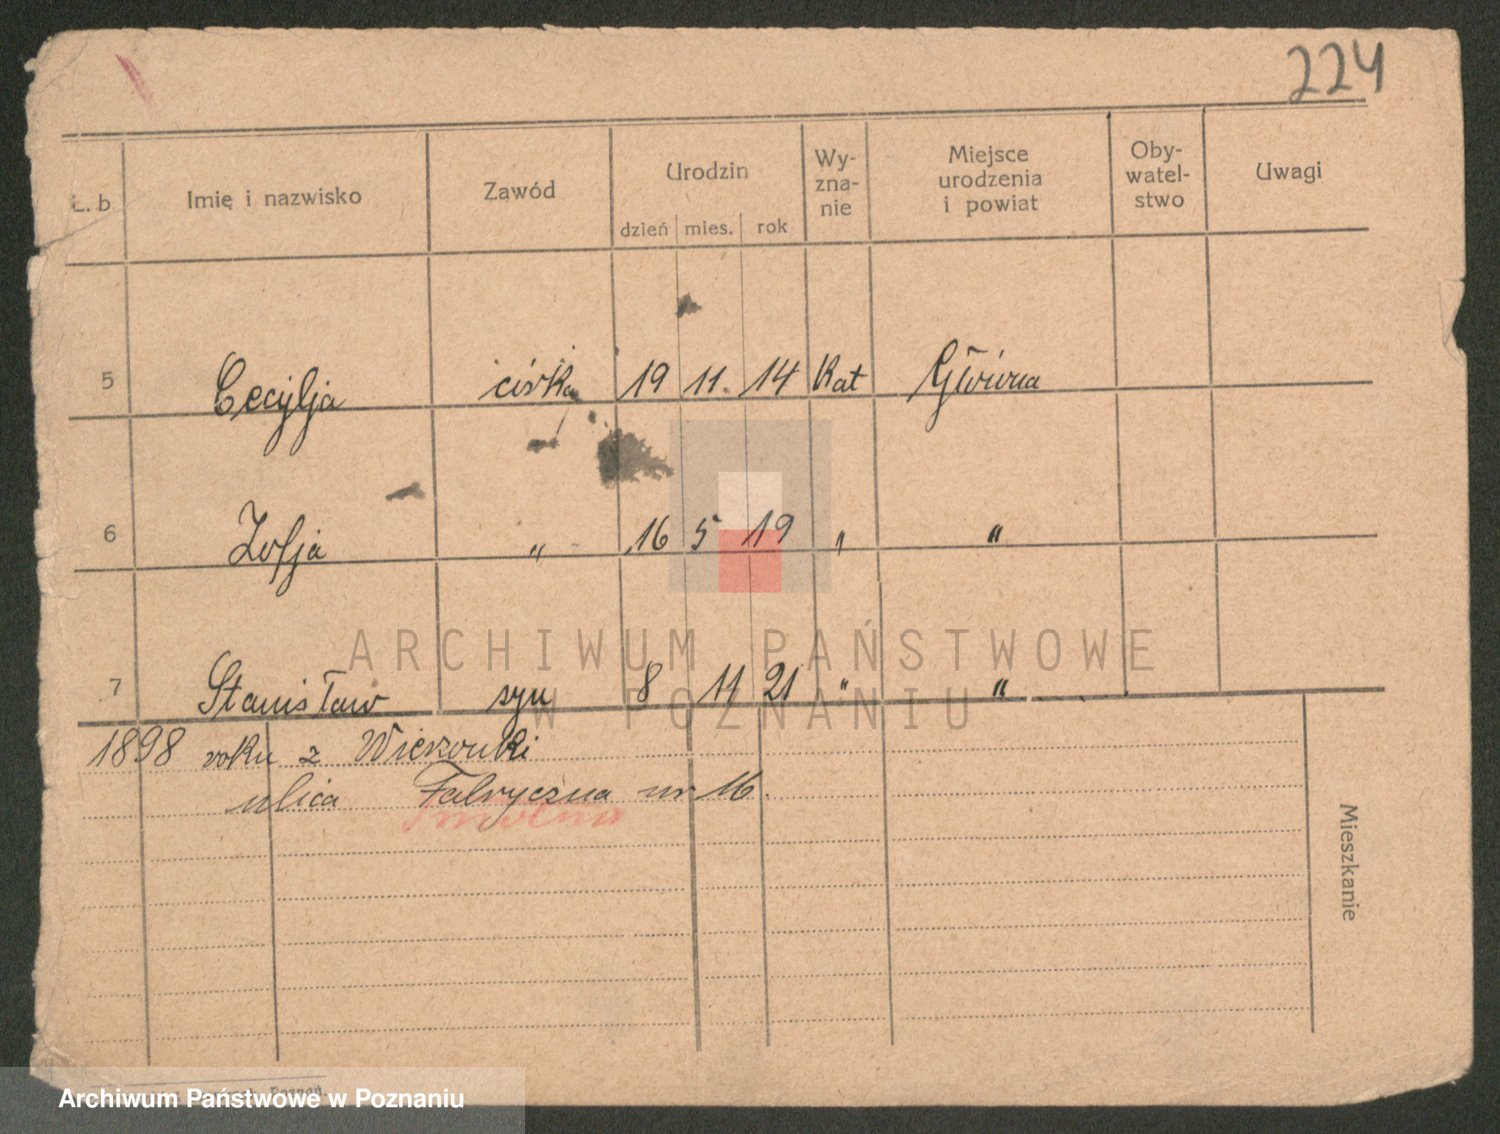 224
L. b Imię i nazwisko Zawód Urodzin Wy-zna-nie Miejsce urodzenia i powiat Oby-watel-stwo Uwagi
dzień mies. rok
5 Cecylja córka 19 11. 14 Kat Główna
6 Zofja " 16 5 19 " "
7 Stanisław syn 8 11 21 " "
ARCHIWUM PAŃSTWOWE
W POZNANIU
1898 roku z Wierzonki
ulica Fabryczna nr 16.
Smolna
Mieszkanie
Poznań.
Archiwum Państwowe w Poznaniu